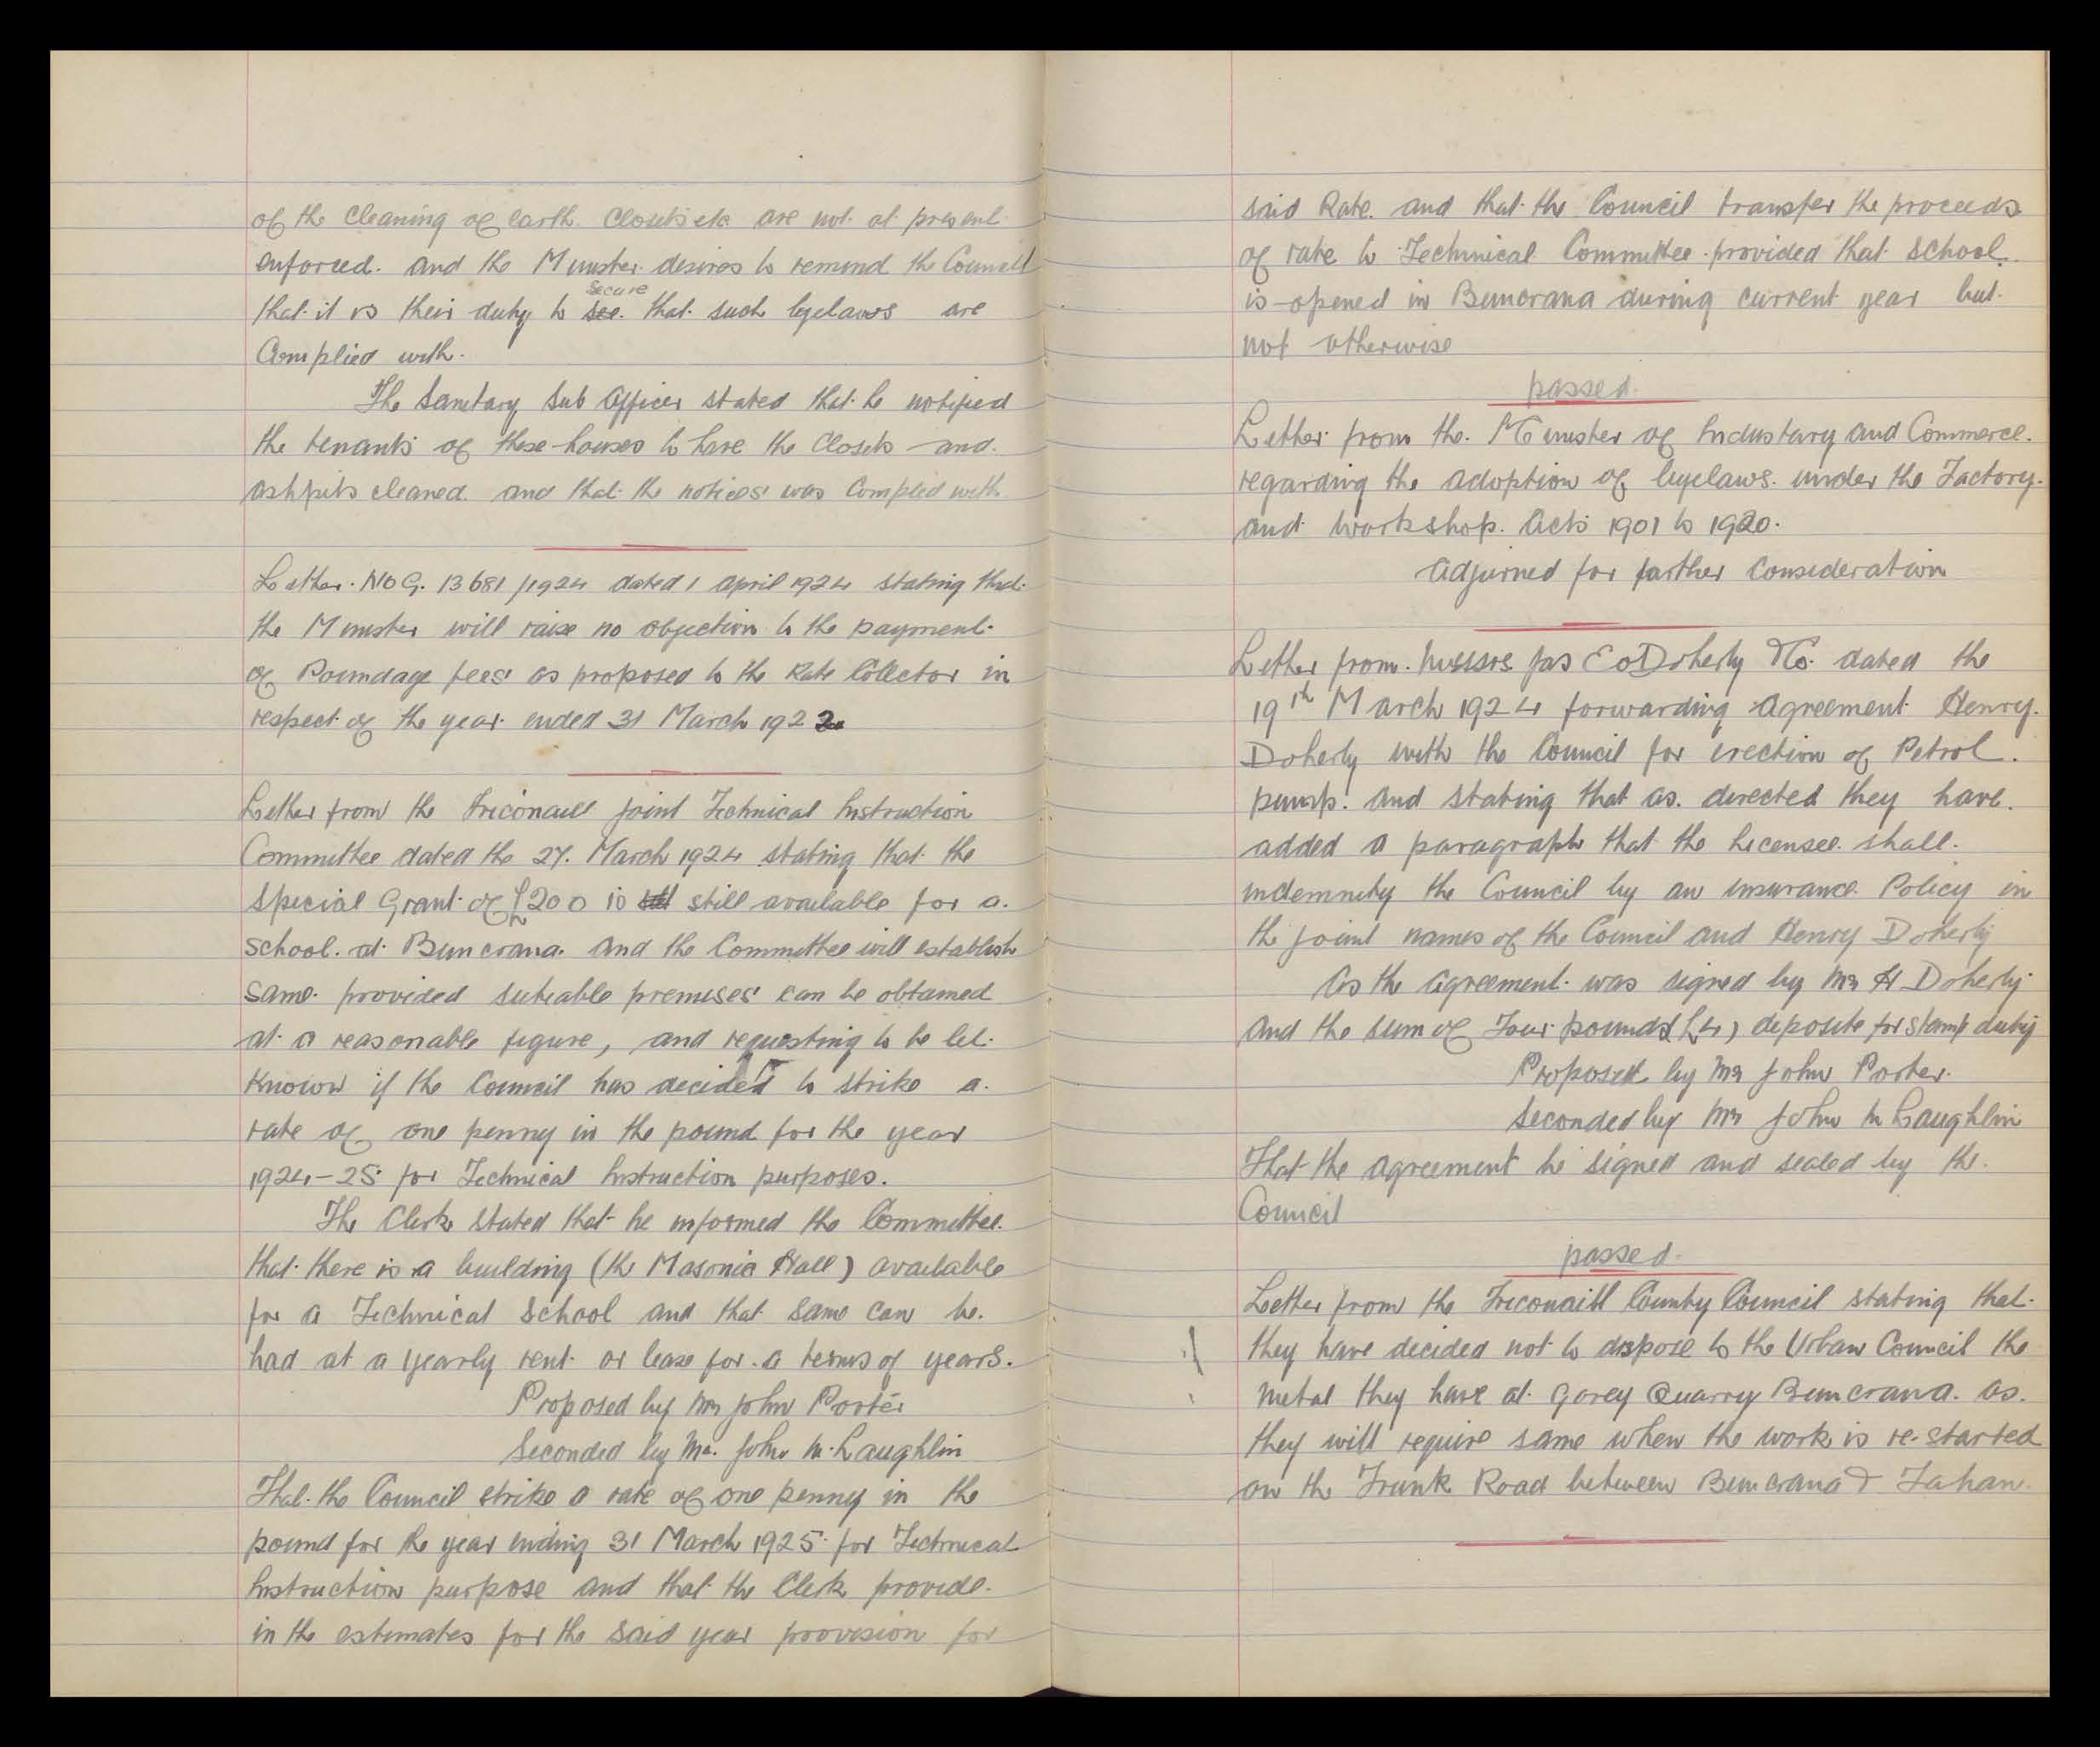 of the cleaning of earth closets etc are not at present
enforced. and the Minister desires to remind the Council
that it is their duty to see secure that such byelaws are
Complied with.
The Sanitary Sub Officer stated that he notified
the tenants of these houses to have the Closets and
ashpits cleaned. and that the notices was Complied with
Letter. No G. 13681/1924 dated 1 April 1924 stating that
the Minister will raise no objection to the payment
of Poundage fees as proposed to the Rate Collector in
respect of the year ended 31 March 1922
Letter from the Triconaill Joint Technical Instruction
Committee dated the 27. March 1924 stating that the
Special Grant of £200 is still available for a
School at Buncrana. and the Committee will establish
same provided suteable premises can be obtained
at a reasonable figure, and requesting to be let
Known if the Council has decided to strike a
rate of one penny in the pound for the year
1924-25 for Technical Instruction purposes.
The Clerk stated that he informed the Committee
that there is a building (the Masonic Hall) available
for a Technical School and that same can be
had at a yearly rent or lease for a terms of years.
Proposed by Mr John Porter
Seconded by Mr. John McLaughlin
That the Council strike a rate of one penny in the
pound for the year ending 31 March 1925 for Technical
Instruction purpose and that the Clerk provide
in the estimates for the said year provision for
said Rate. and that the Council transfer the proceeds
of rate to Technical Committee provided that School
is opened in Buncrana during current year but
not otherwise
passed
Letter from the Minister of Industary and Commerce.
regarding the adoption of byelaws under the Factory
and Workshop. Acts 1901 to 1920.
Adjurned for farther Consideration
Letter from Messrs Jas E O'Doherty & Co. dated the
19th March 1924 forwarding Agreement Henry
Doherty with the Council for erection of Petrol
pump. and stating that as directed they have
added a paragraph that the licensee shall
indemnity the Council by an insurance Policy in
the joint names of the Council and Henry Doherty
As the Agreement was signed by Mr H Doherty
and the sum of Four pounds (£4) deposite for stamp duty
Proposed by Mr John Porter
Seconded by Mr John McLaughlin
That the agreement be signed and sealed by the
Council
passed
Letter from the Triconaill County Council stating that
they have decided not to dispose to the Urban Council the
Metal they have at Gorey Quarry Buncrana. as
they will require same when the work is re-started
on the Trunk Road between Buncrana & Fahan